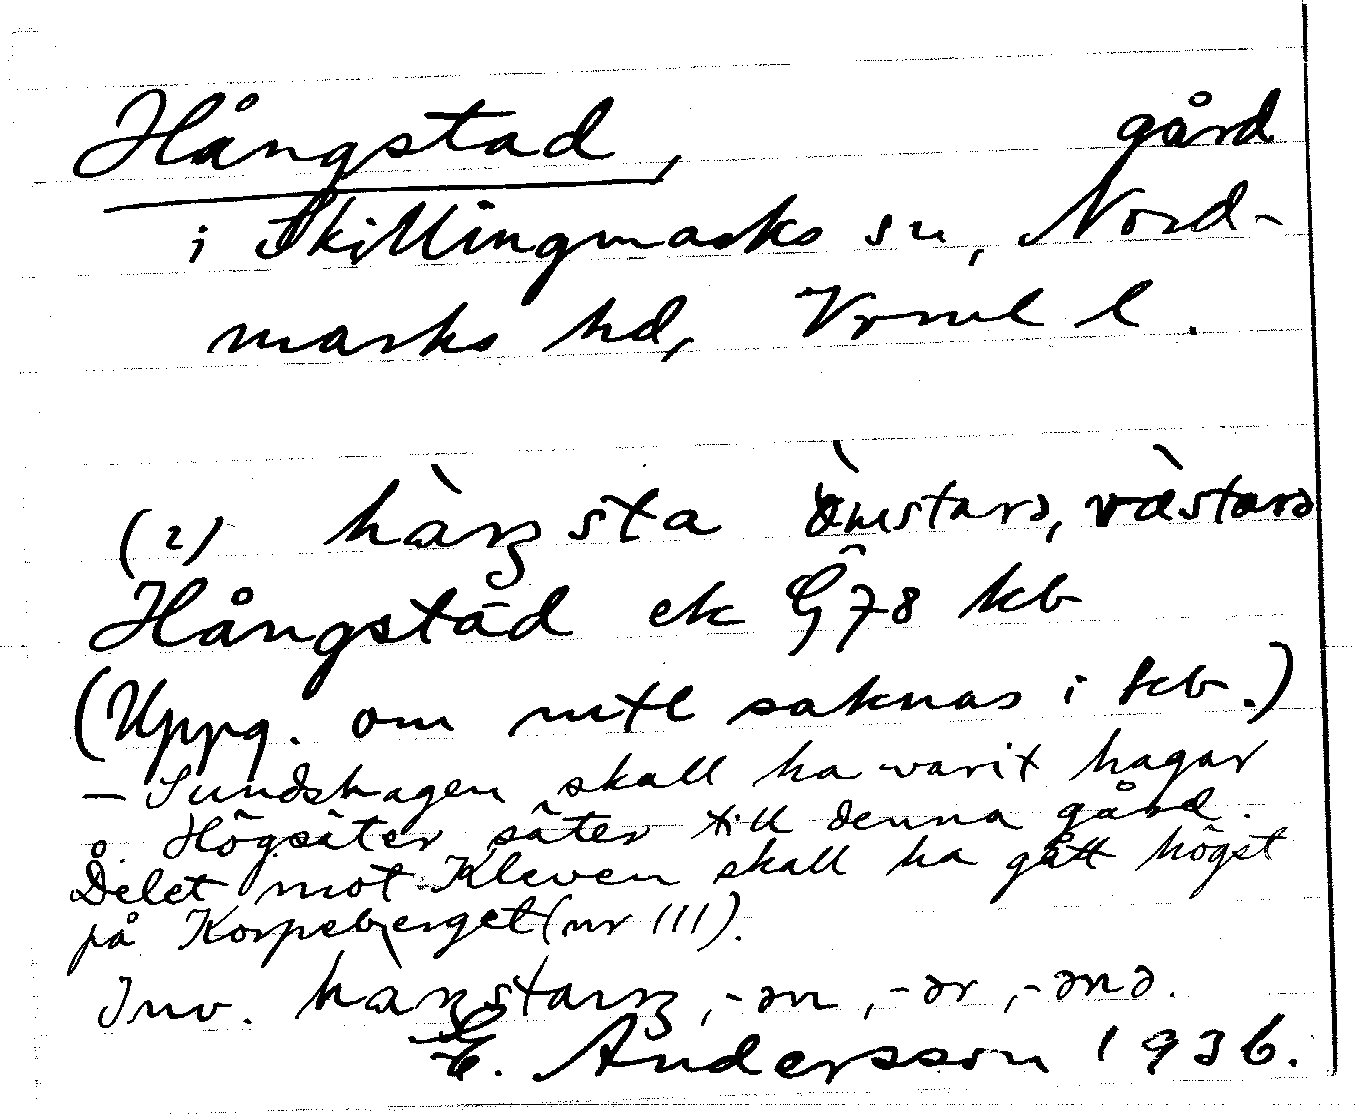 Hångstad, gård
i Skillingmarks sn, Nord-
marks hd, Vrml l.
(2) hàŋsta ò̀mstarə, væ̀starə
Hångstad ek G78 kb
(Uppg. om mtl saknas i kb.)
– Sundshagen skall ha varit hagar
o. Högsäter säter till denna gård.
Delet mot Kleven skall ha gått högst
på Korpeberget (nr 111).
Inv. hàŋstariŋ, -ən, -ər, -ənə.
E. Andersson 1936.